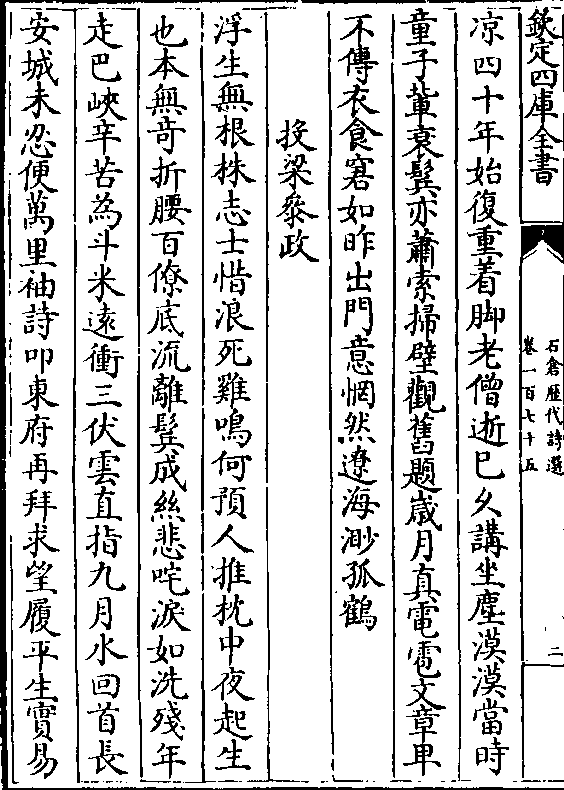 欽定四庫全書
石倉歷代詩選
卷一百七十五
二
凉四十年始復重着脚老僧逝已久講坐塵漠漠當時
童子輩衰鬢亦蕭索掃壁觀舊題歲月真電雹文章卑
不傳衣食窘如昨出門意惘然遼海渺孤鶴
投梁㕘政
浮生無根株志士惜浪死雞鳴何預人推枕中夜起生
也本無竒折腰百僚底流離鬢成絲悲咤淚如洗殘年
走巴峽辛苦為斗米逺衝三伏雲直指九月水回首長
安城未忍便萬里袖詩叩東府再拜求望履平生實易